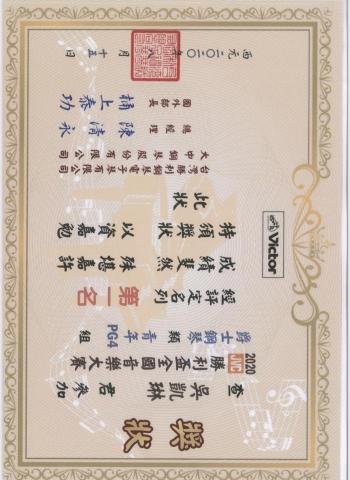 Victor
獎狀
查吳凱琳君參加
2020 JVC 勝利盃全國音樂大賽
爵士鋼琴類青年PG4組
經評定名列第一名
成績斐然殊堪嘉許
特頒獎狀以資嘉勉
此狀
台灣勝利鋼琴電子琴有限公司
大中鋼琴股份有限公司
總經理 陳清永
國外部長 桶上泰功
西元二〇二〇年八月十五日